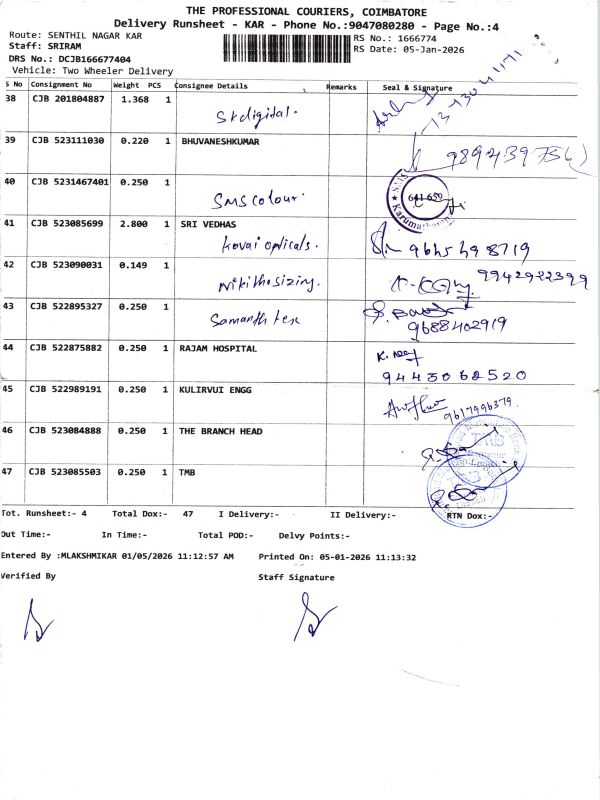 THE PROFESSIONAL COURIERS, COIMBATORE
Delivery Runsheet - KAR - Phone No.:9047080280 - Page No.:4
Route: SENTHIL NAGAR KAR
Staff: SRIRAM
DRS No.: DCJB166677404
Vehicle: Two Wheeler Delivery
RS No.: 1666774
RS Date: 05-Jan-2026
S No Consignment No Weight PCS Consignee Details Remarks Seal & Signature
38 CJB 201804887 1.368 1 St digital.
39 CJB 523111030 0.220 1 BHUVANESHKUMAR
40 CJB 5231467401 0.250 1 SMS Colour. 641 659
41 CJB 523085699 2.800 1 SRI VEDHAS
Kovai opticals. 9645498719
42 CJB 523090031 0.149 1 Nikithosizing. 9942922399
43 CJB 522895327 0.250 1 Samanth tex 9688402919
44 CJB 522875882 0.250 1 RAJAM HOSPITAL
9443062520
45 CJB 522989191 0.250 1 KULIRVUI ENGG 9617996379.
46 CJB 523084888 0.250 1 THE BRANCH HEAD TMB
47 CJB 523085503 0.250 1 TMB
Tot. Runsheet:- 4 Total Dox:- 47 I Delivery:- II Delivery:- RTN Dox:-
Out Time:- In Time:- Total POD:- Delvy Points:-
Entered By :MLAKSHMIKAR 01/05/2026 11:12:57 AM Printed On: 05-01-2026 11:13:32
Verified By Staff Signature